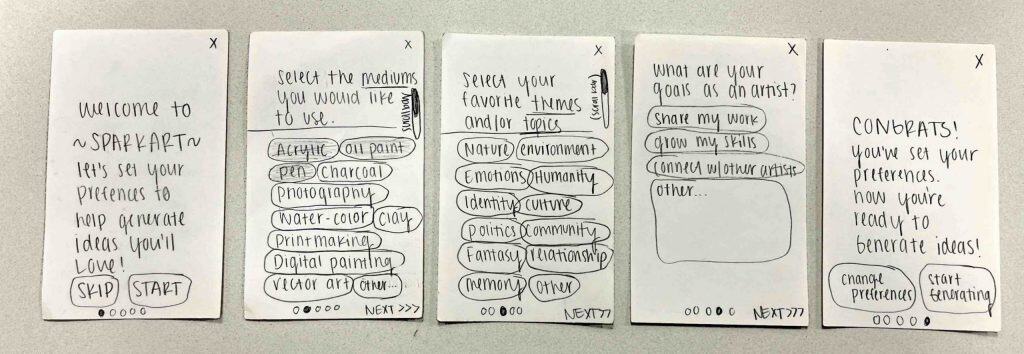 X
Welcome to
~SPARKART~
let's set your
prefences to
help generate
ideas you'll
LOVE!
SKIP START
X
Select the mediums
you would like
to use.
Acrylic oil paint
pen charcoal
photography
water-color clay
printmaking
Digital painting
vector art other...
NEXT >>>
X
Select your
favorite themes
and/or topics
(scroll bar)
Nature environment
Emotions Humanity
Identity culture
politics community
Fantasy relationship
memory other
NEXT>>
X
What are your
goals as an artist?
share my work
grow my skills
connect w/other artists
other...
NEXT>>>
X
CONGRATS!
you've set your
preferences.
now you're
ready to
Generate ideas!
change start
preferences Generating